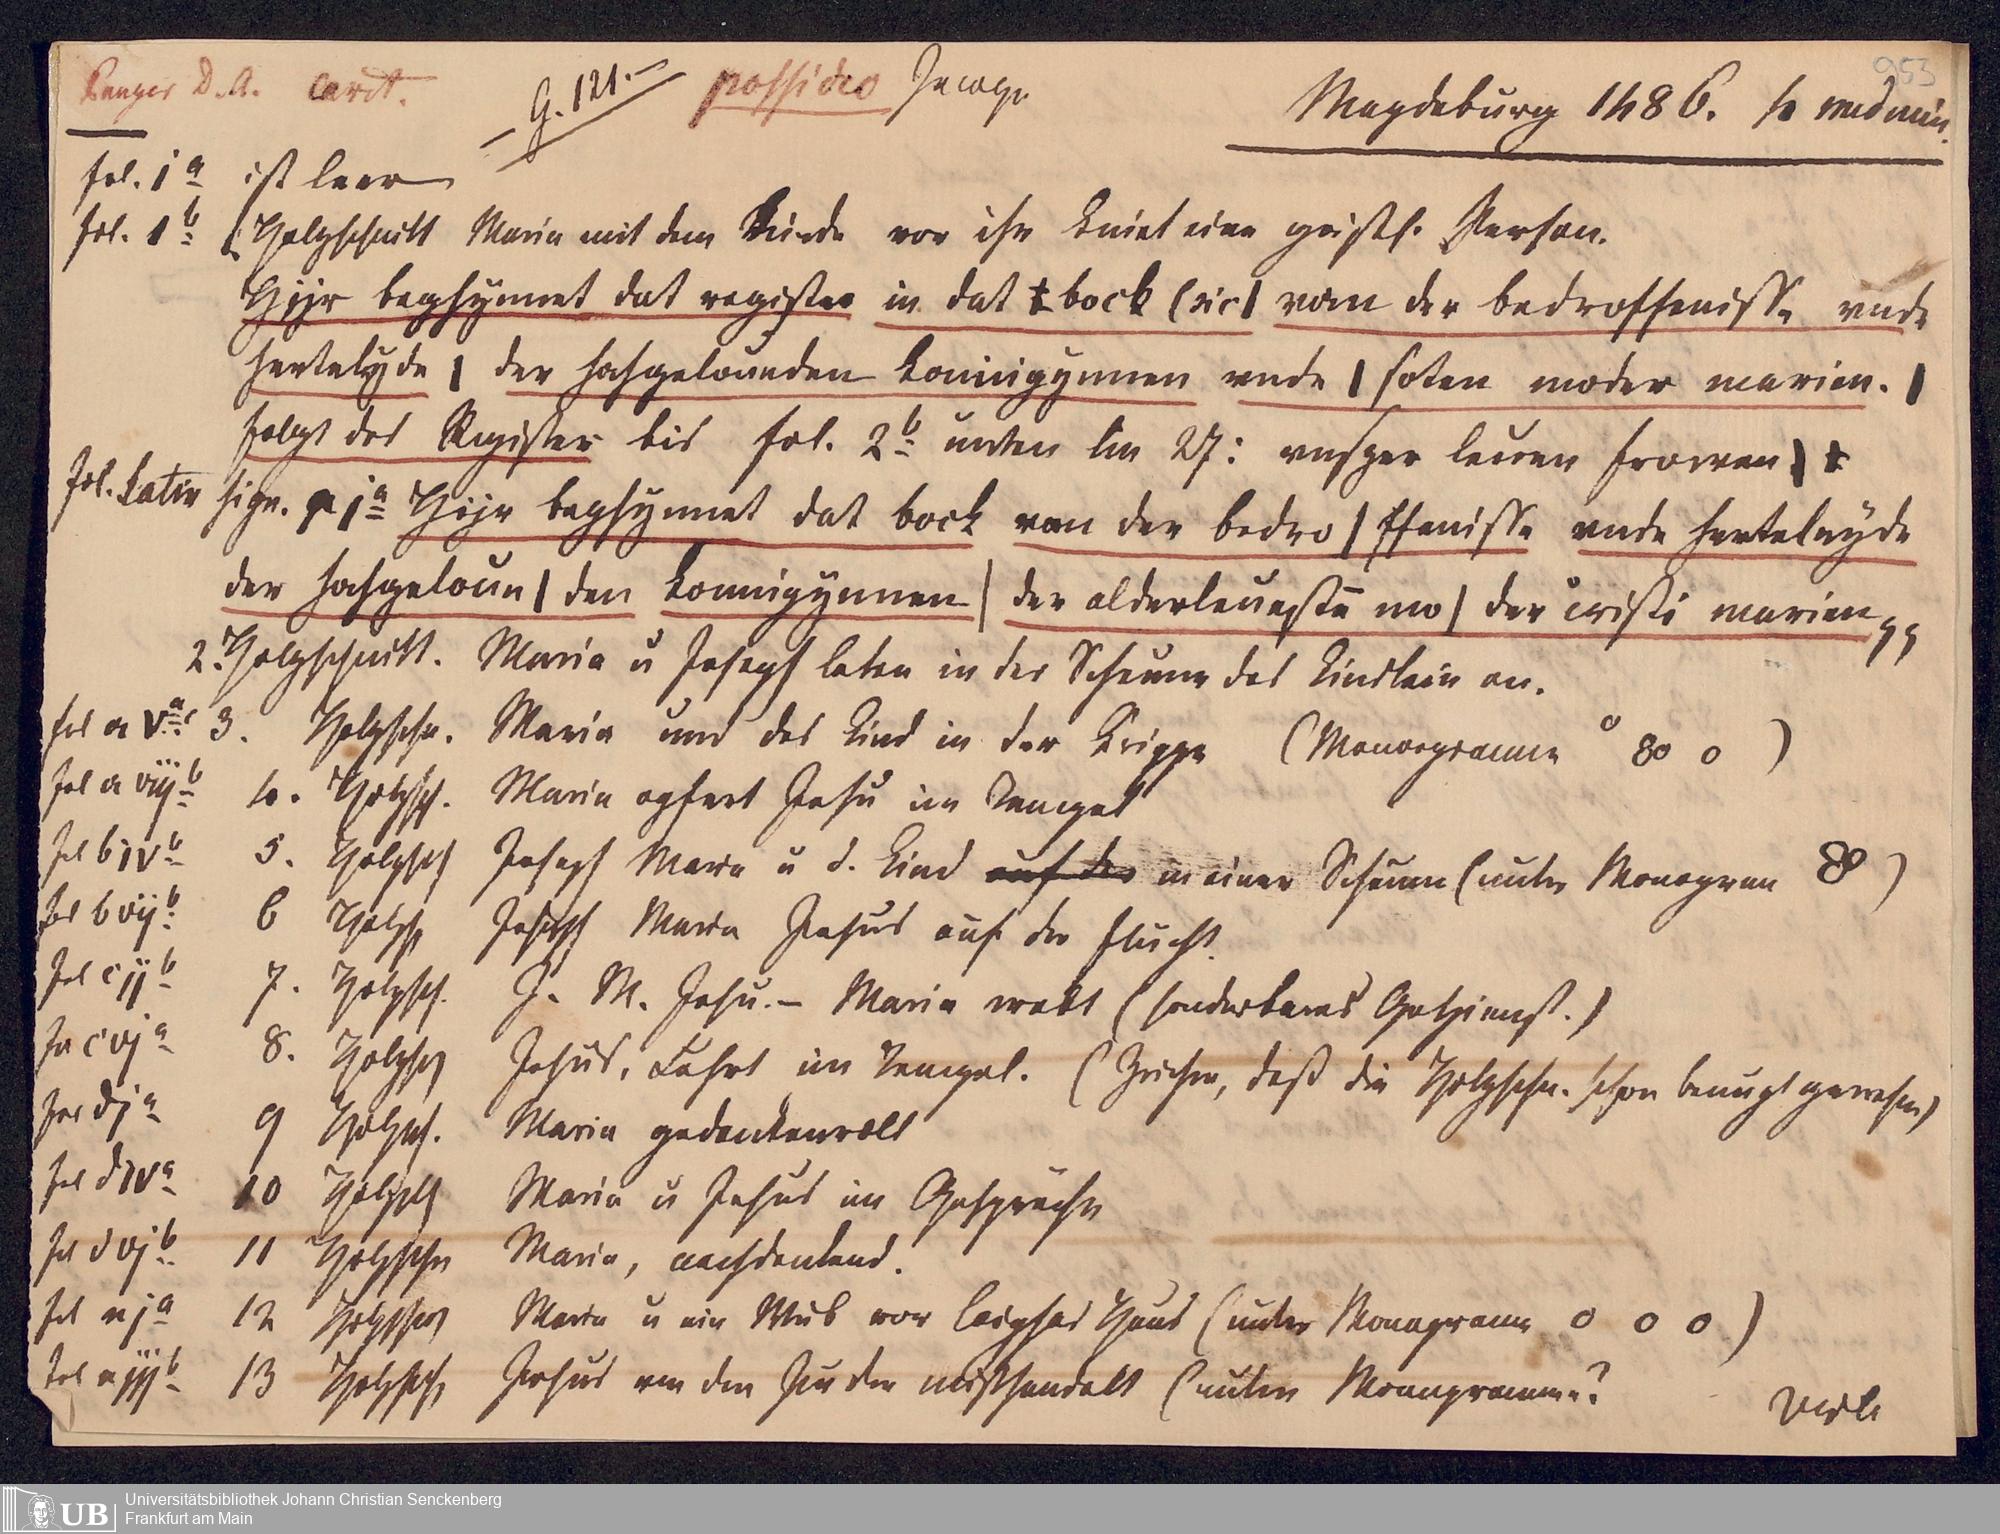 953
Panzer D. A. carit.
G. 121.
possideo
Magdeburg 1486. 4
fol. 1 a ist leer
fol. 1 b Holzschnitt Maria mit dem Kinde vor ihr kniet eine geistl. Person.
Hijr beghynnet dat register in dat t bock (sic) van der bedroffenisse vnde
hertelyde | der hochgelaueden konnigynnen vnde | soten moder marien. |
folgt das Register bis fol. 2 b unten lin 27: vnser leuen frowen |
fol. sign. a j a Hijr beghynnet dat bock van der bedro | ffenisse vnde herteleyde
der hochgeloue | den konnigynnen | der alderleuesten mo | der cristi marien
2. Holzschnitt. Maria u Joseph beten in der Scheune das Kindlein an.
fol a v a 3. Holzschn. Maria und das Kind in der Krippe (Monogramme o 80 o )
fol a viij b 4. Holzsch. Maria opfert Jesu im Tempel
fol b iv b 5. Holzsch Joseph Maria u d. Kind auf der in einer Scheune (unten Monogram 8 )
fol b vij b 6 Holzsch Joseph Maria Jesus auf der Flucht.
fol c ij b 7. Holzsch. J. M. Jesu. — Maria webt (sonderbares
fol c vj a 8. Holzsch Jesus, lehrt im Tempel. (Zeichen, daß die Holzschn. schon benutzt gewesen)
fol d j a 9 Holzsch. Maria gedankenvoll
fol d iv a 10 Holzsch Maria u Jesus im Gespräche
fol d vj b 11 Holzschn Maria, nachdenkend.
fol e j a 12 Holzschn Maria u ein Weib vor Haus (unten Monogramm o o o )
fol e iij b 13 Holzsch Jesus von den Juden mißhandelt (unten Monogramme?
Universitätsbibliothek Johann Christian Senckenberg
Frankfurt am Main
UB